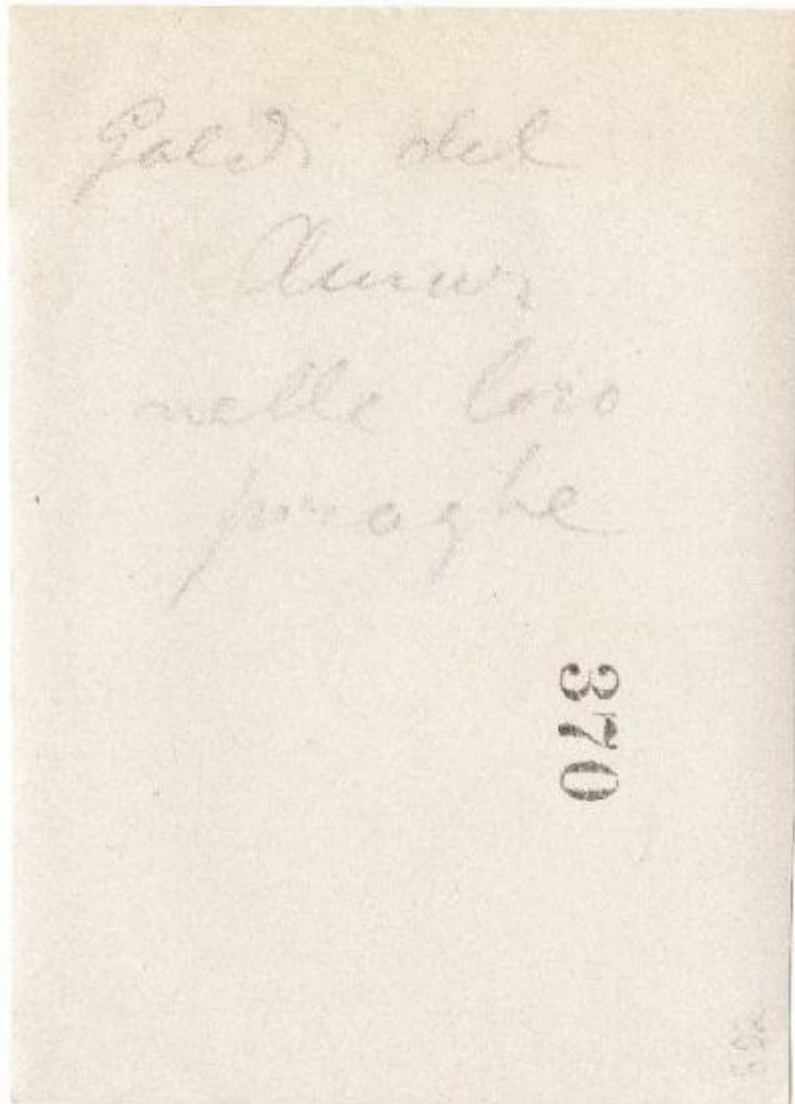 Galdi del
Amur
nelle loro
piroghe
370